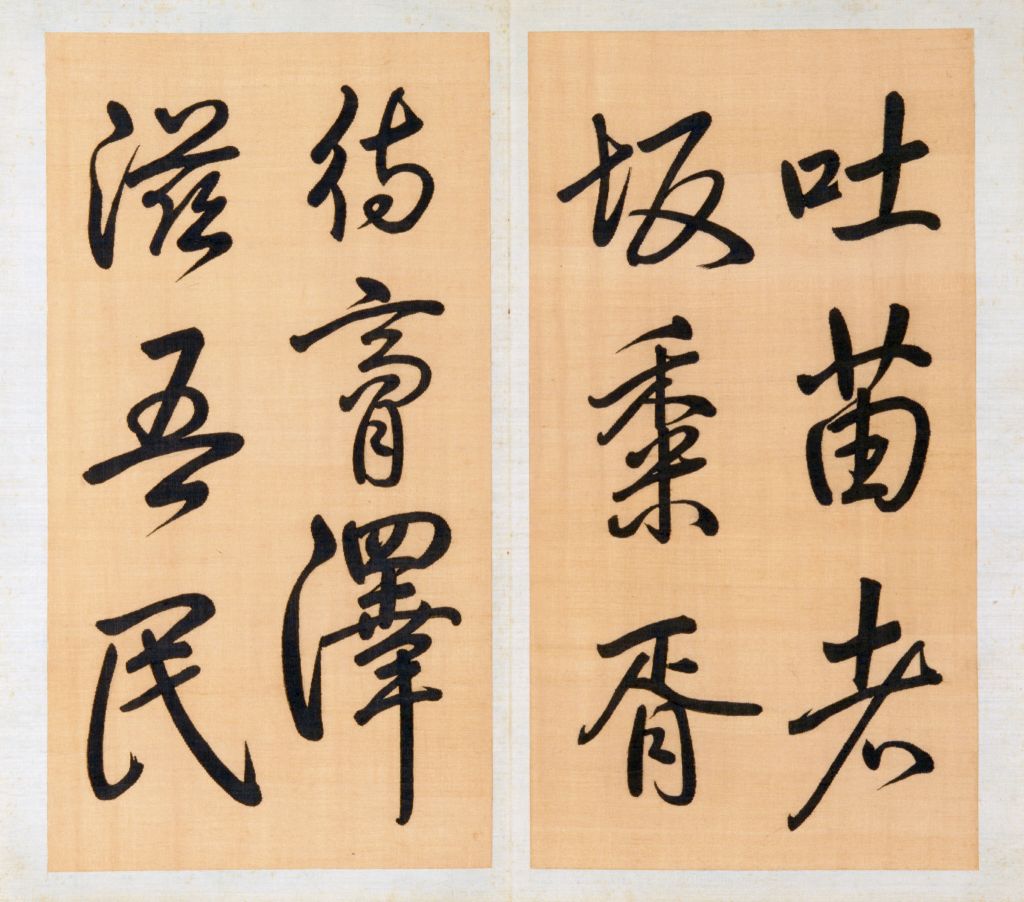 吐苗者
坂黍胥
待膏澤
滋吾民